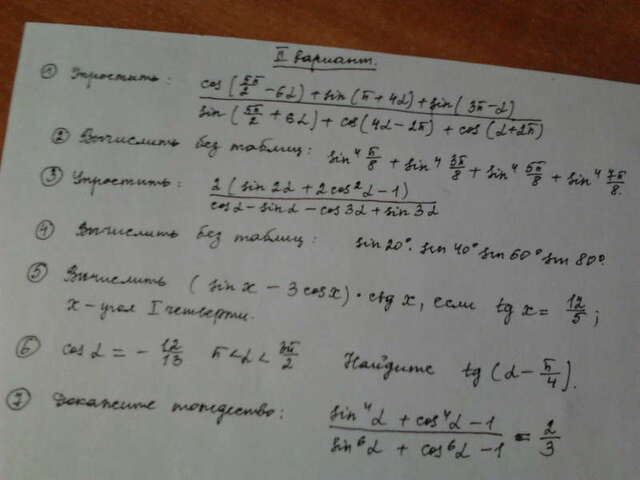 II вариант.
① Упростить: (cos(5π/2 − 6α) + sin(π + 4α) + sin(3π − α)) / (sin(5π/2 + 6α) + cos(4α − 2π) + cos(α + 2π))
② Вычислить без таблиц: sin⁴ π/8 + sin⁴ 3π/8 + sin⁴ 5π/8 + sin⁴ 7π/8.
③ Упростить: 2(sin 2α + 2cos²α − 1) / (cos α − sin α − cos 3α + sin 3α)
④ Вычислить без таблиц: sin 20° · sin 40° sin 60° sin 80°.
⑤ Вычислить (sin x − 3 cos x) · ctg x, если tg x = 12/5;
x − угол I четверти.
⑥ cos α = − 12/13 π < α < 3π/2 Найдите tg(α − π/4).
⑦ Докажите тождество: (sin⁴α + cos⁴α − 1) / (sin⁶α + cos⁶α − 1) = 2/3